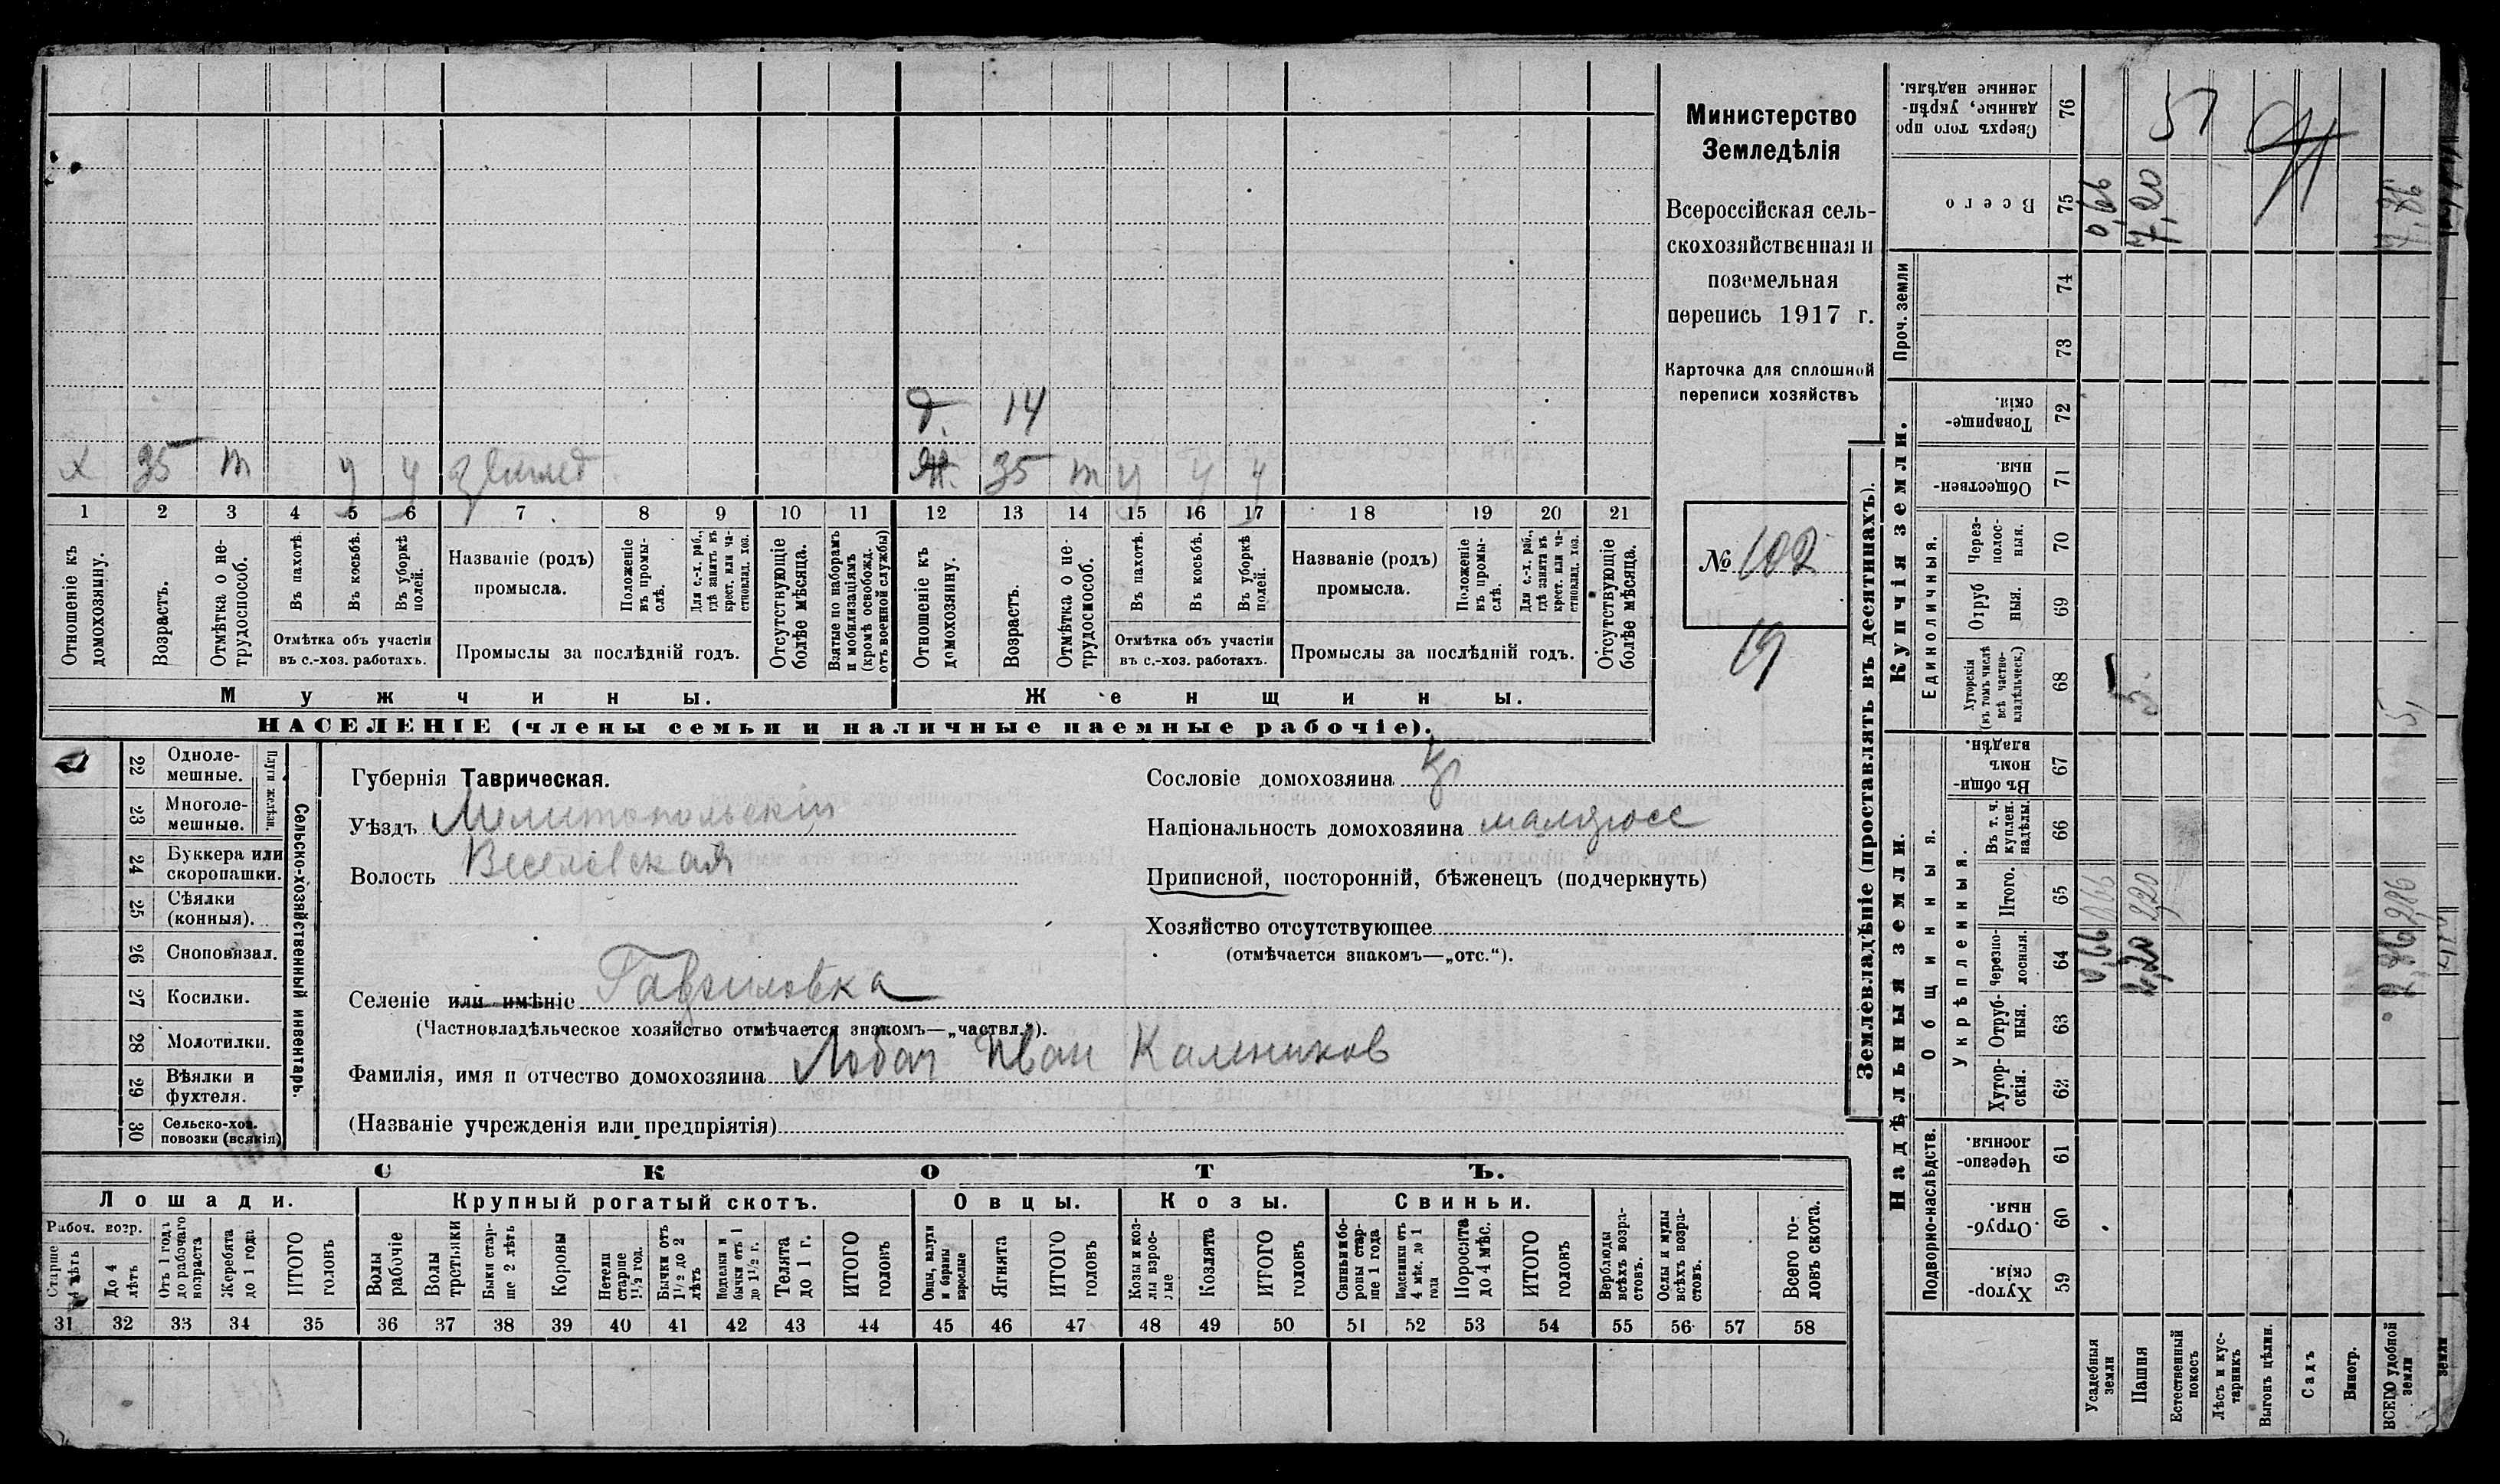 Министерство
Земледѣлія
Всероссійская сель-
скохозяйственная и
поземельная
перепись 1917 г.
Карточка для сплошной
переписи хозяйствъ
№ 102
19
д. 14
х 35 т у у землед
ж. 35 т у у у
1 2 3 4 5 6 7 8 9 10 11 12 13 14 15 16 17 18 19 20 21
Отношеніе къ домохозяину.
Возрастъ.
Отмѣтка о не-трудоспособ.
Въ пахотѣ.
Въ косьбѣ.
Въ уборкѣ полей.
Отмѣтка объ участіи
въ с.-хоз. работахъ.
Названіе (родъ)
промысла.
Положеніе въ промы-слѣ.
Для с.-х. раб., гдѣ занятъ въ крест. или ча-стновлад. хоз.
Промыслы за послѣдній годъ.
Отсутствующіе болѣе мѣсяца.
Взятые по наборамъ и мобилизаціямъ (кромѣ освобожд. отъ военной службы)
Отношеніе къ домохозяину.
Возрастъ.
Отмѣтка о не-трудоспособ.
Въ пахотѣ.
Въ косьбѣ.
Въ уборкѣ полей.
Отмѣтка объ участіи
въ с.-хоз. работахъ.
Названіе (родъ)
промысла.
Положеніе въ промы-слѣ.
Для с.-х. раб., гдѣ занята въ крест. или ча-стновлад. хоз.
Промыслы за послѣдній годъ.
Отсутствующіе болѣе мѣсяца.
Мужчины.
Женщины.
НАСЕЛЕНІЕ (члены семьи и наличные наемные рабочіе).
22 Одноле-мешные.
23 Многоле-мешные.
Плуги желѣзн.
24 Буккера или скоропашки.
25 Сѣялки (конныя).
26 Сноповязал.
27 Косилки.
28 Молотилки.
29 Вѣялки и фухтеля.
30 Сельско-хоз. повозки (всякія)
Сельско-хозяйственный инвентарь.
Губернія Таврическая.
Уѣздъ Мелитопольскій
Волость Веселовская
Селеніе или имѣніе Гавриловка
(Частновладѣльческое хозяйство отмѣчается знакомъ—„частвл.“).
Фамилія, имя и отчество домохозяина Лобач Иван Калеников
(Названіе учрежденія или предпріятія)
Сословіе домохозяина кр
Національность домохозяина малоросс
Приписной, посторонній, бѣженецъ (подчеркнуть)
Хозяйство отсутствующее
(отмѣчается знакомъ—„отс.“).
СКОТЪ.
Лошади.
Крупный рогатый скотъ.
Овцы.
Козы.
Свиньи.
Рабоч. возр.
Старше 4 лѣтъ
До 4 лѣтъ
Отъ 1 года до рабочаго возраста
Жеребята до 1 года
ИТОГО головъ
Волы рабочіе
Волы третьяки
Быки стар-ше 2 лѣтъ
Коровы
Нетели старше 1½ год.
Бычки отъ 1½ до 2 лѣтъ
Подтелки и бычки отъ 1 до 1½ г.
Телята до 1 г.
ИТОГО головъ
Овцы, валухи и бараны взрослые
Ягнята
ИТОГО головъ
Козы и коз-лы взрос-лые
Козлята
ИТОГО головъ
Свиньи и бо-ровы стар-ше 1 года
Подсвинки отъ 4 мѣс. до 1 года
Поросята до 4 мѣс.
ИТОГО головъ
Верблюды всѣхъ возра-стовъ.
Ослы и мулы всѣхъ возра-стовъ.
Всего го-ловъ скота.
31 32 33 34 35 36 37 38 39 40 41 42 43 44 45 46 47 48 49 50 51 52 53 54 55 56 57 58
Землевладѣніе (проставлять въ десятинахъ).
Надѣльныя земли.
Купчія земли.
Проч. земли
Подворно-наслѣдств.
Общинныя.
Укрѣпленныя.
Единоличныя.
Хутор-скія. 59
Отруб-ныя. 60
Черезпо-лосныя. 61
Хутор-скія. 62
Отруб-ныя. 63
Черезпо-лосныя. 64
Итого. 65
Въ т. ч. куплен. надѣлы. 66
Въ общи-номъ владѣн. 67
Хуторскія (въ томъ числѣ всѣ частно-владѣльческ.) 68
Отруб-ныя. 69
Через-полос-ныя. 70
Обществен-ныя. 71
Товарище-скія. 72
73
74
Всего 75
Сверхъ того про-данные, укрѣп-ленные надѣлы. 76
Усадебныя земли 0,66 0,66 0,66
Пашня 2,20 2,20 5. 7,20
Естественный покосъ
Лѣсъ и кус-тарникъ
Выгонъ цѣлин.
Садъ
Виногр.
ВСЕГО удобной земли 2,86 2,86 5, 7,86
земли
51